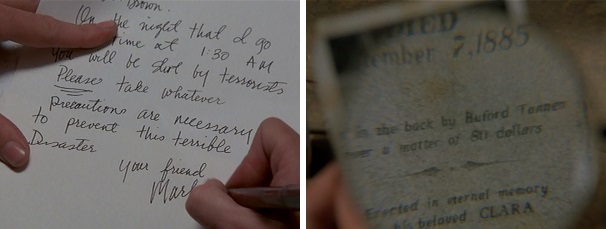 Brown.
On the night that I go
time at 1:30 AM
you will be shot by terrorists
Please take whatever
precautions are necessary
to prevent this terrible
Disaster
Your friend
Mar
ember 7, 1885
in the back by Buford Tannen
a matter of 80 dollars
Erected in eternal memory
his beloved CLARA